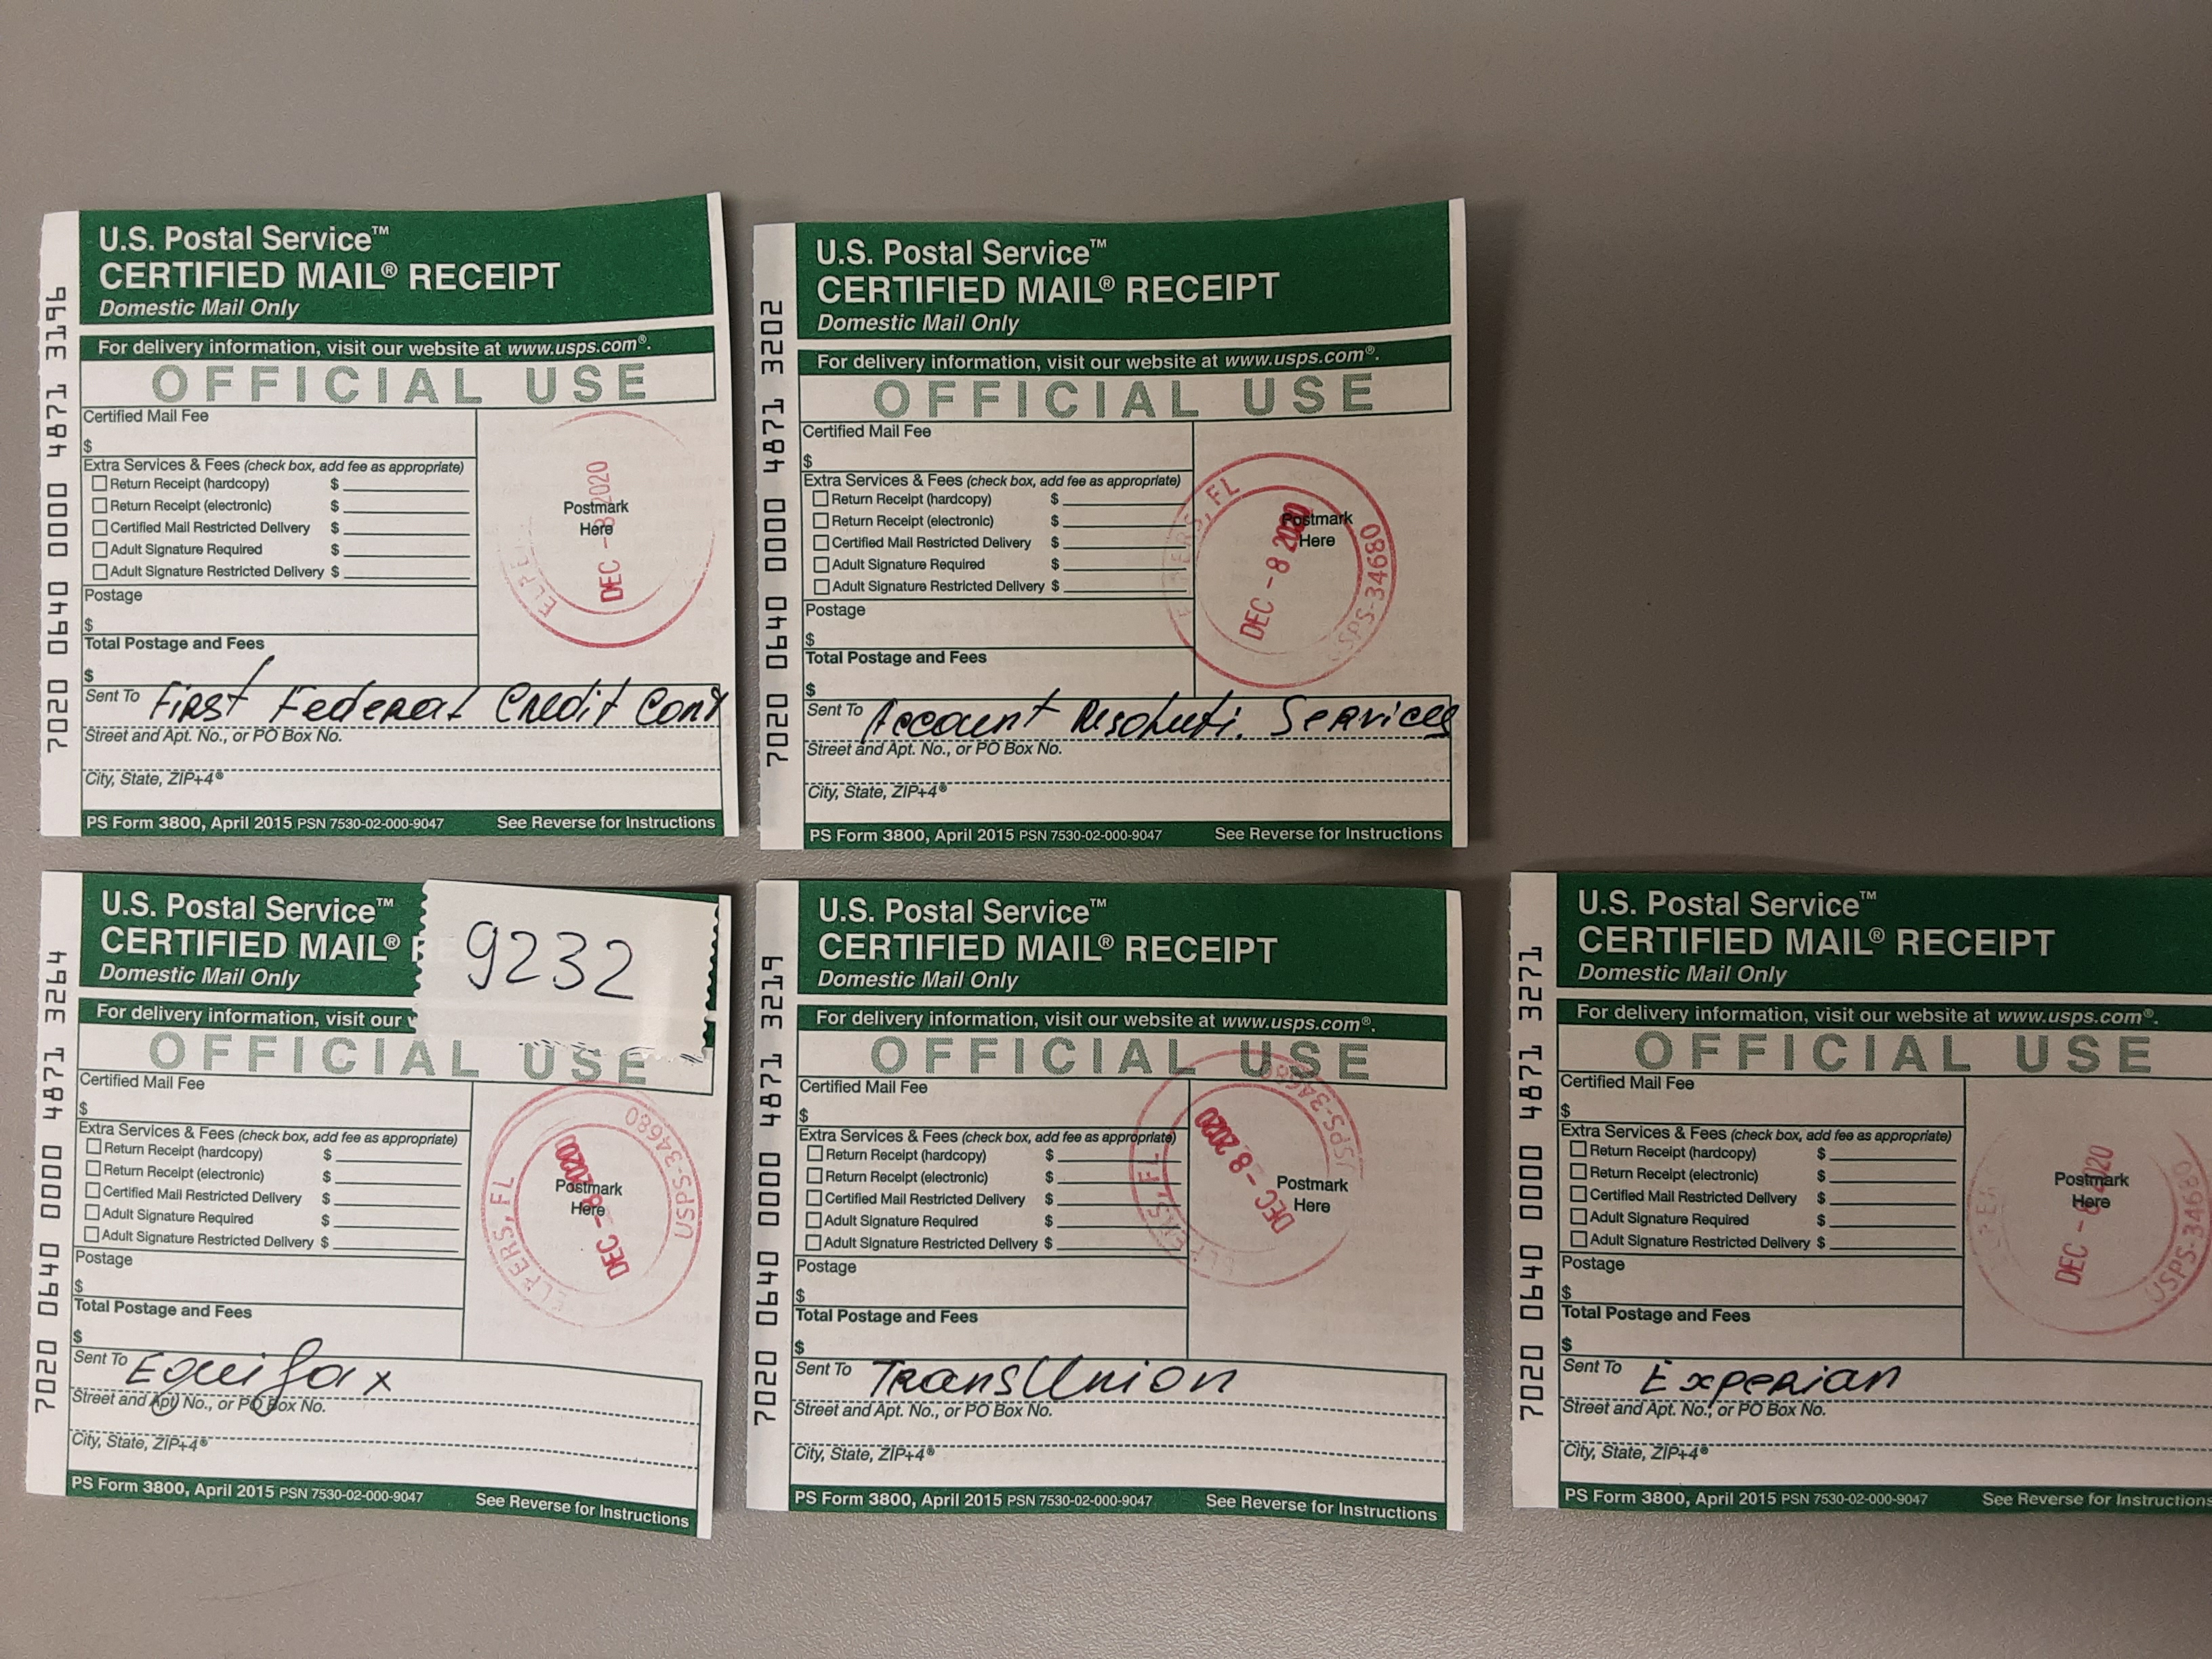 7020 0640 0000 4871 3264
U.S. Postal Service™
CERTIFIED MAIL®
Domestic Mail Only
For delivery information, visit our
9232
OFFICIAL USE
Certified Mail Fee
$
Extra Services & Fees (check box, add fee as appropriate)
Return Receipt (hardcopy) $
Return Receipt (electronic) $
Certified Mail Restricted Delivery $
Adult Signature Required $
Adult Signature Restricted Delivery $
Postage
$
Total Postage and Fees
$
ELFERS, FL
DEC -8 2020
USPS-34680
Postmark
Here
Sent To
Street and Apt. No., or PO Box No.
City, State, ZIP+4®
PS Form 3800, April 2015 PSN 7530-02-000-9047 See Reverse for Instructions
7020 0640 0000 4871 3196
U.S. Postal Service™
CERTIFIED MAIL® RECEIPT
Domestic Mail Only
For delivery information, visit our website at www.usps.com®.
OFFICIAL USE
Certified Mail Fee
$
Extra Services & Fees (check box, add fee as appropriate)
Return Receipt (hardcopy) $
Return Receipt (electronic) $
Certified Mail Restricted Delivery $
Adult Signature Required $
Adult Signature Restricted Delivery $
Postage
$
Total Postage and Fees
$
DEC -8 2020
Postmark
Here
Sent To First Federal Credit Cont
Street and Apt. No., or PO Box No.
City, State, ZIP+4®
PS Form 3800, April 2015 PSN 7530-02-000-9047 See Reverse for Instructions
7020 0640 0000 4871 3219
U.S. Postal Service™
CERTIFIED MAIL® RECEIPT
Domestic Mail Only
For delivery information, visit our website at www.usps.com®.
OFFICIAL USE
Certified Mail Fee
$
Extra Services & Fees (check box, add fee as appropriate)
Return Receipt (hardcopy) $
Return Receipt (electronic) $
Certified Mail Restricted Delivery $
Adult Signature Required $
Adult Signature Restricted Delivery $
Postage
$
Total Postage and Fees
$
ELFERS, FL
DEC -8 2020
Postmark
Here
Sent To TransUnion
Street and Apt. No., or PO Box No.
City, State, ZIP+4®
PS Form 3800, April 2015 PSN 7530-02-000-9047 See Reverse for Instructions
7020 0640 0000 4871 3202
U.S. Postal Service™
CERTIFIED MAIL® RECEIPT
Domestic Mail Only
For delivery information, visit our website at www.usps.com®.
OFFICIAL USE
Certified Mail Fee
$
Extra Services & Fees (check box, add fee as appropriate)
Return Receipt (hardcopy) $
Return Receipt (electronic) $
Certified Mail Restricted Delivery $
Adult Signature Required $
Adult Signature Restricted Delivery $
Postage
$
Total Postage and Fees
$
ELFERS, FL
DEC -8 2020
USPS-34680
Postmark
Here
Sent To Account Services
Street and Apt. No., or PO Box No.
City, State, ZIP+4®
PS Form 3800, April 2015 PSN 7530-02-000-9047 See Reverse for Instructions
7020 0640 0000 4871 3271
U.S. Postal Service™
CERTIFIED MAIL® RECEIPT
Domestic Mail Only
For delivery information, visit our website at www.usps.com®.
OFFICIAL USE
Certified Mail Fee
$
Extra Services & Fees (check box, add fee as appropriate)
Return Receipt (hardcopy) $
Return Receipt (electronic) $
Certified Mail Restricted Delivery $
Adult Signature Required $
Adult Signature Restricted Delivery $
Postage
$
Total Postage and Fees
$
DEC -8 2020
USPS-34680
Postmark
Here
Sent To Experian
Street and Apt. No., or PO Box No.
City, State, ZIP+4®
PS Form 3800, April 2015 PSN 7530-02-000-9047 See Reverse for Instructions